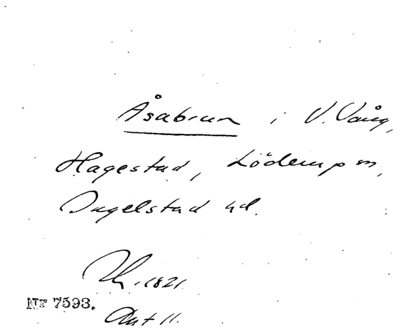 Åsabrun i V. Vång,
Hagestad, Löderup sn,
Ingelstad hd.
1821
NF 7593.
Akt 11.